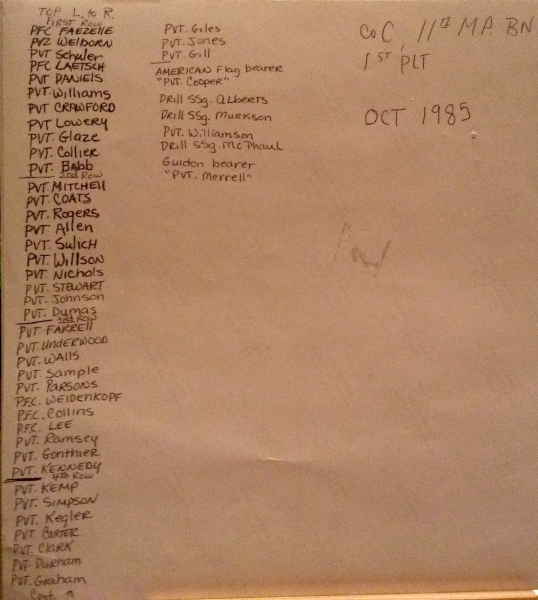 TOP L. to R.
FIRST ROW
PFC FAEZELLE
PV2 WELDORN
PVT Schuler
PFC LAETSCH
PVT DANIELS
PVT. Williams
PVT CRAWFORD
PVT Lowery
PVT. Glaze
PVT. Collier
PVT. Babb
2nd Row
PVT. MITCHELL
PVT. COATS
PVT. Rogers
PVT. Allen
PVT. Sulich
PVT. Willson
PVT. Nichols
PVT. STEWART
PVT. Johnson
PVT. Dumas
3rd Row
PVT. FARRELL
PVT. UNDERWOOD
PVT. WALLS
PVT. Sample
PVT. PARSONS
P.F.C. WEIDENKOPF
P.F.C. Collins
P.F.C. LEE
PVT. Ramsey
PVT. Gonthier
PVT. KENNEDY
4th Row
PVT. KEMP
PVT. SIMPSON
PVT. Kegler
PVT. CARTER
PVT. CLARK
PVT. Durham
PVT. Graham
Cont. ↗
PVT. Giles
PVT. Jones
PVT. Gill
AMERICAN Flag bearer
"PVT. Cooper"
Drill SSg. Alberts
Drill SSg. Murkson
PVT. Williamson
Drill SSg. McPhaul
Guidon bearer
"PVT. Merrell"
Co C, 11th M.P. BN
1ST PLT
OCT 1985